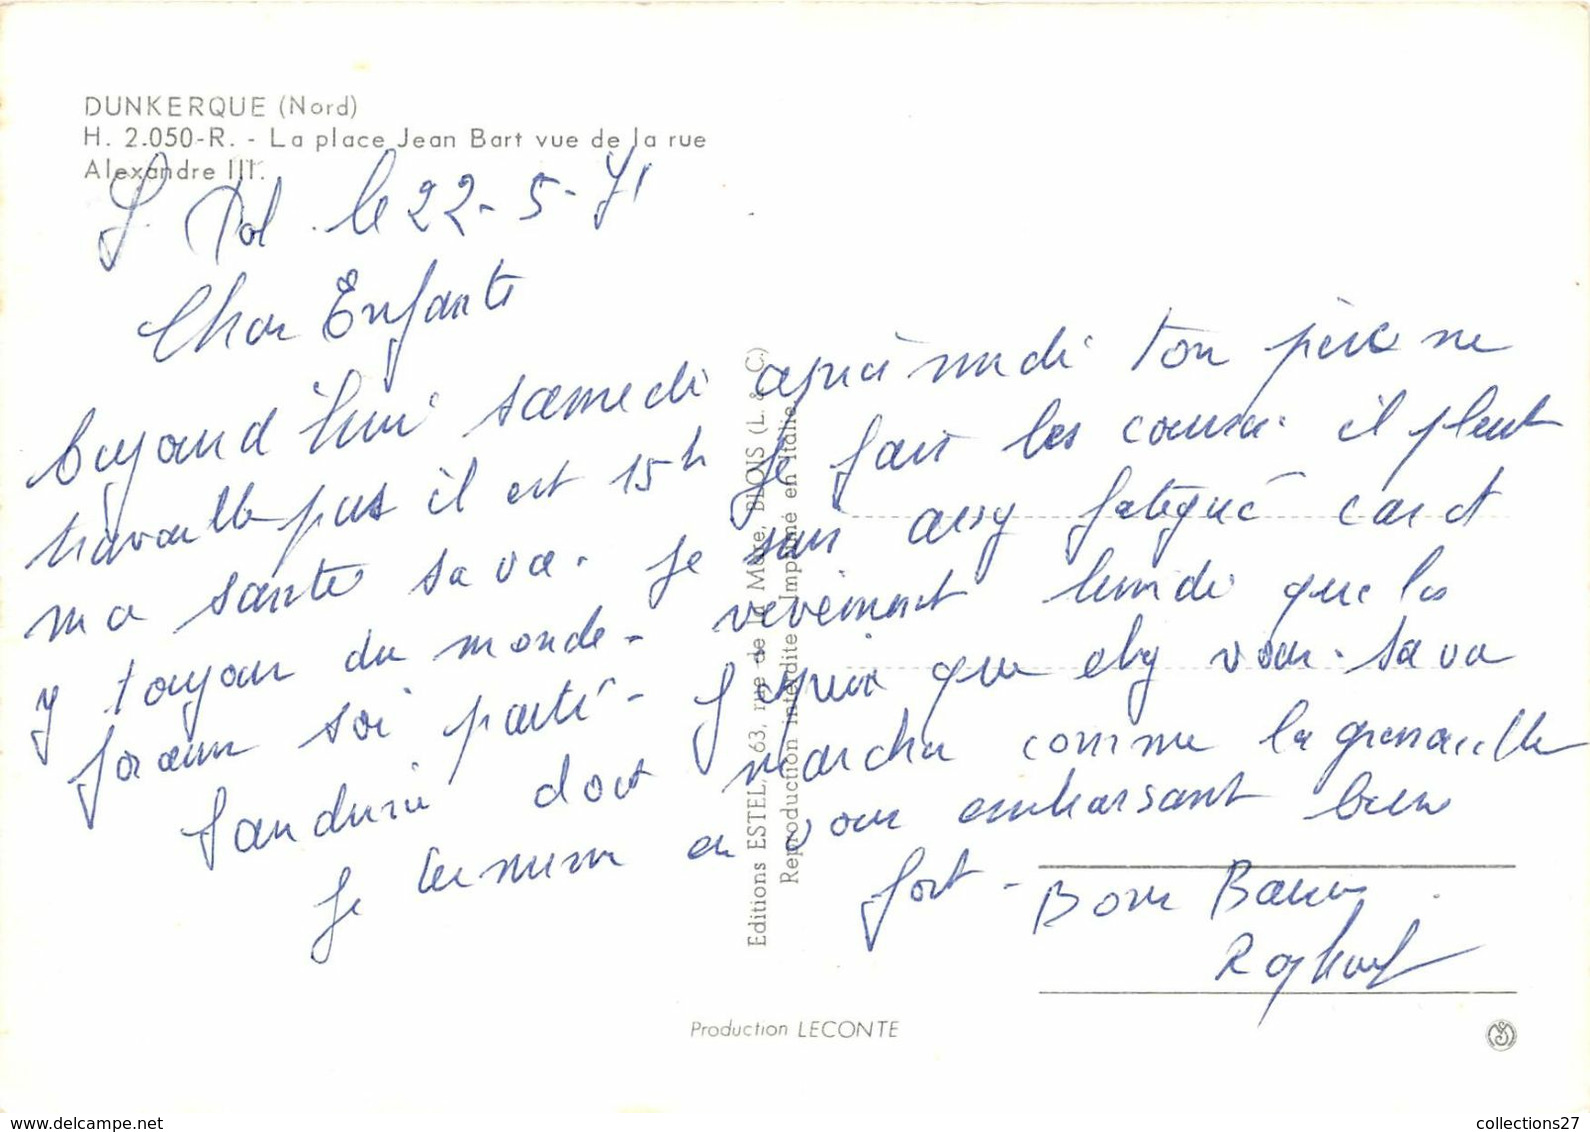 DUNKERQUE (Nord)
H. 2.050-R. - La place Jean Bart vue de la rue
Alexandre III.
S. Pol. le 22-5-71
Cher Enfants
aujourd'hui samedi après midi ton père ne
travaille pas il est 15h je fais les courses. il pleut
ma sante sa va. je suis assy fatigué car il
y toujour du monde. vivement lundi que les
forain soi parti. J'espère que chy vous. sa va
Sandrine doit marcher comme la grenouille
Je termine en vous embrassant bien
fort - Bons Baisers
Editions ESTEL, 63, rue de la Mare, BLOIS (L. & C.)
Reproduction interdite Imprimé en Italie
Production LECONTE
www.delcampe.net
collections27